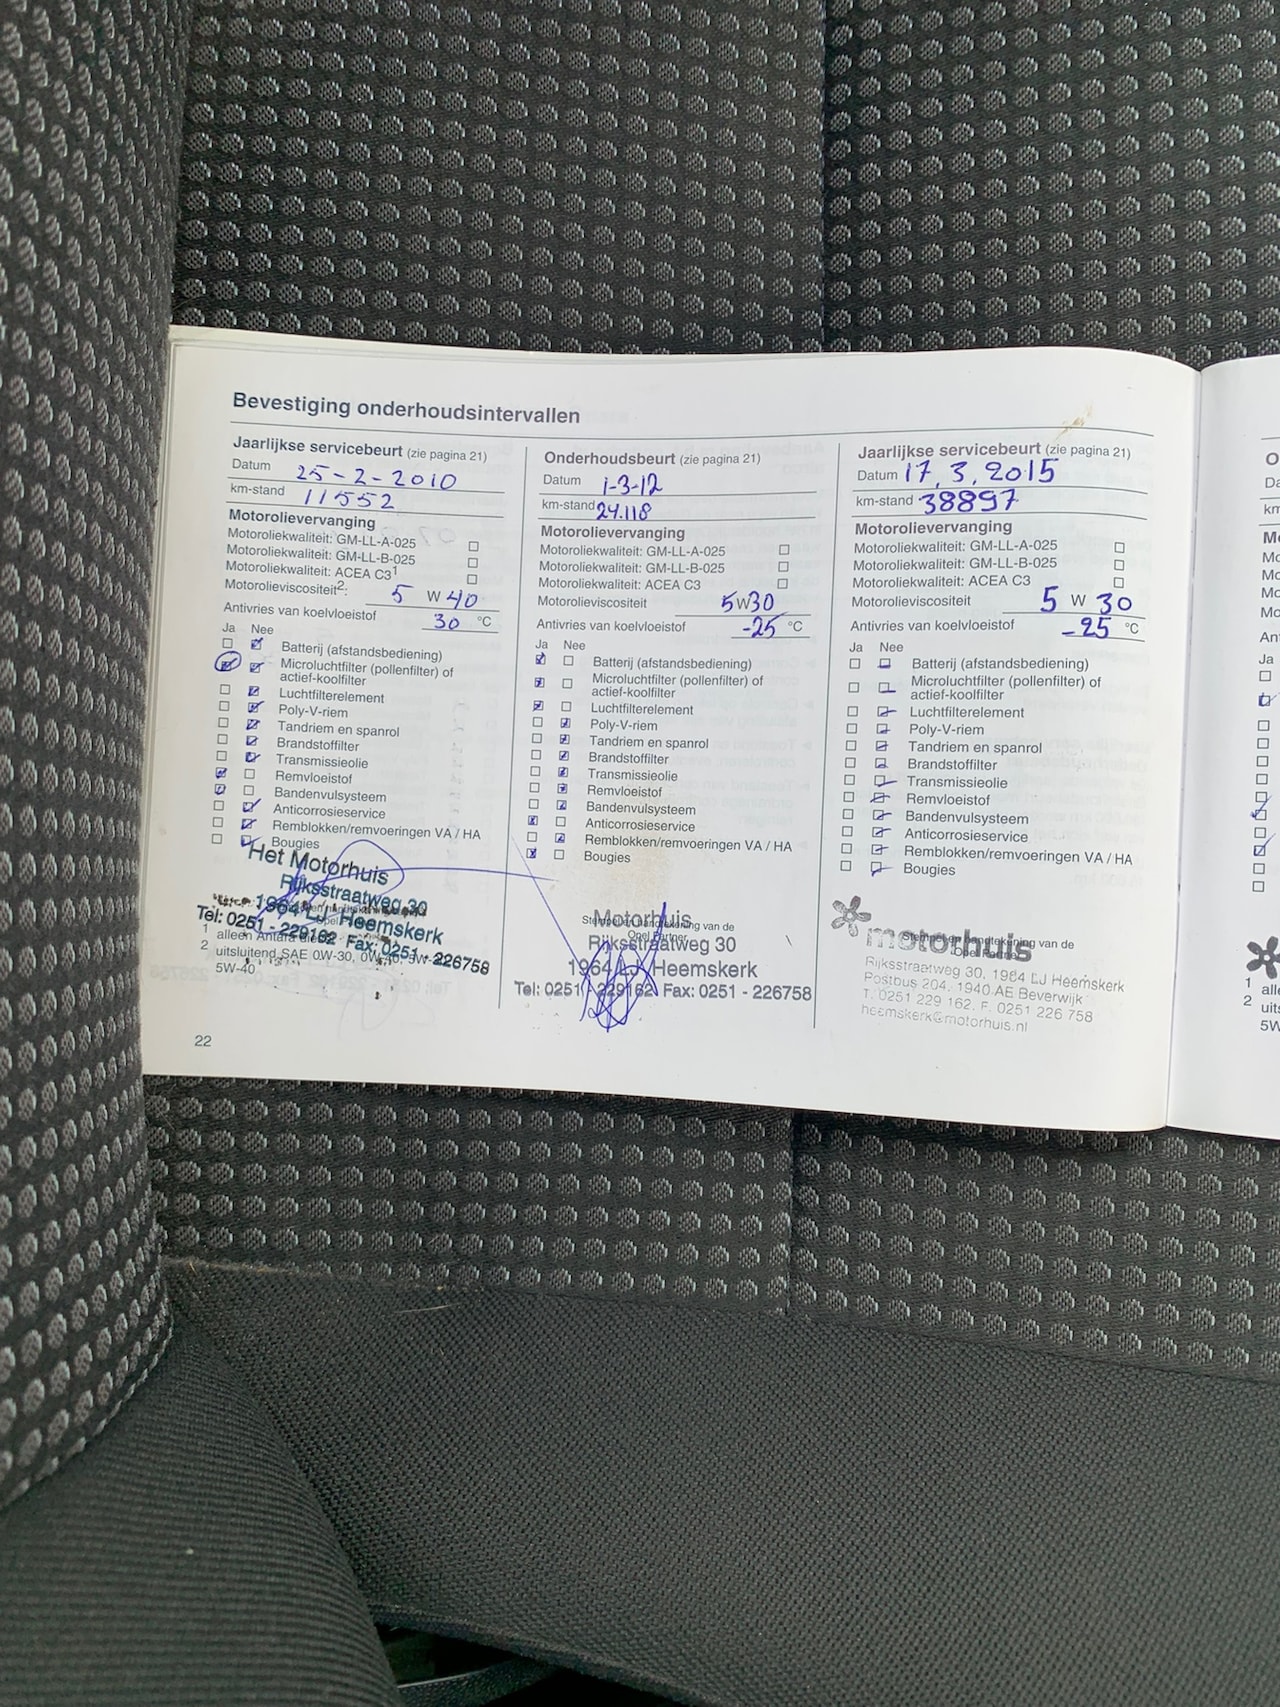 Bevestiging onderhoudsintervallen
Jaarlijkse servicebeurt (zie pagina 21)
Datum 25-2-2010
km-stand 11552
Motorolievervanging
Motoroliekwaliteit: GM-LL-A-025
Motoroliekwaliteit: GM-LL-B-025
Motoroliekwaliteit: ACEA C3 1
Motorolieviscositeit2: 5 W 40
Antivries van koelvloeistof 30 °C
Ja Nee
Batterij (afstandsbediening)
Microluchtfilter (pollenfilter) of
actief-koolfilter
Luchtfilterelement
Poly-V-riem
Tandriem en spanrol
Brandstoffilter
Transmissieolie
Remvloeistof
Bandenvulsysteem
Anticorrosieservice
Remblokken/remvoeringen VA / HA
Bougies
Het Motorhuis
Rijksstraatweg 30
1964 LJ Heemskerk
Tel: 0251 - 229162 Fax: 0251 - 226758
1 alleen Antara diesel
2 uitsluitend SAE 0W-30, 0W-40, 5W-
5W-40
22
Onderhoudsbeurt (zie pagina 21)
Datum 1-3-12
km-stand 24.118
Motorolievervanging
Motoroliekwaliteit: GM-LL-A-025
Motoroliekwaliteit: GM-LL-B-025
Motoroliekwaliteit: ACEA C3
Motorolieviscositeit 5W30
Antivries van koelvloeistof -25 °C
Ja Nee
Batterij (afstandsbediening)
Microluchtfilter (pollenfilter) of
actief-koolfilter
Luchtfilterelement
Poly-V-riem
Tandriem en spanrol
Brandstoffilter
Transmissieolie
Remvloeistof
Bandenvulsysteem
Anticorrosieservice
Remblokken/remvoeringen VA / HA
Bougies
Motorhuis
Stempel en handtekening van de
Opel Partner
Rijksstraatweg 30
1964 LJ Heemskerk
Tel: 0251 - 229162 Fax: 0251 - 226758
Jaarlijkse servicebeurt (zie pagina 21)
Datum 17, 3, 2015
km-stand 38897
Motorolievervanging
Motoroliekwaliteit: GM-LL-A-025
Motoroliekwaliteit: GM-LL-B-025
Motoroliekwaliteit: ACEA C3
Motorolieviscositeit 5 W 30
Antivries van koelvloeistof -25 °C
Ja Nee
Batterij (afstandsbediening)
Microluchtfilter (pollenfilter) of
actief-koolfilter
Luchtfilterelement
Poly-V-riem
Tandriem en spanrol
Brandstoffilter
Transmissieolie
Remvloeistof
Bandenvulsysteem
Anticorrosieservice
Remblokken/remvoeringen VA / HA
Bougies
motorhuis
Stempel en handtekening van de
Opel Partner
Rijksstraatweg 30, 1964 LJ Heemskerk
Postbus 204, 1940 AE Beverwijk
T. 0251 229 162, F. 0251 226 758
heemskerk@motorhuis.nl
O
Da
km
Mo
Mo
Mo
Mo
Mo
An
Ja
1 alle
2 uits
5W